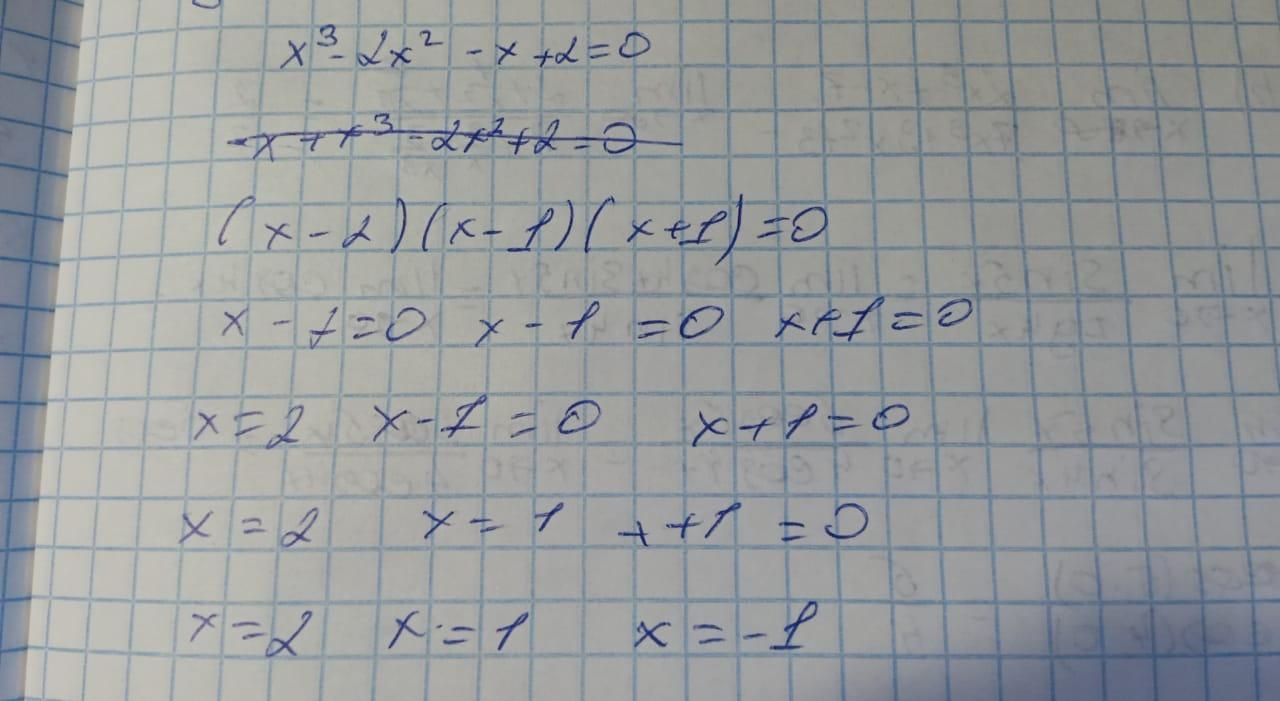 x³ - 2x² - x + 2 = 0
-x + x³ - 2x² + 2 = 0
(x - 2)(x - 1)(x + 1) = 0
x - 1 = 0 x - 1 = 0 x + 1 = 0
x = 2 x - 1 = 0 x + 1 = 0
x = 2 x = 1 x + 1 = 0
x = 2 x = 1 x = -1